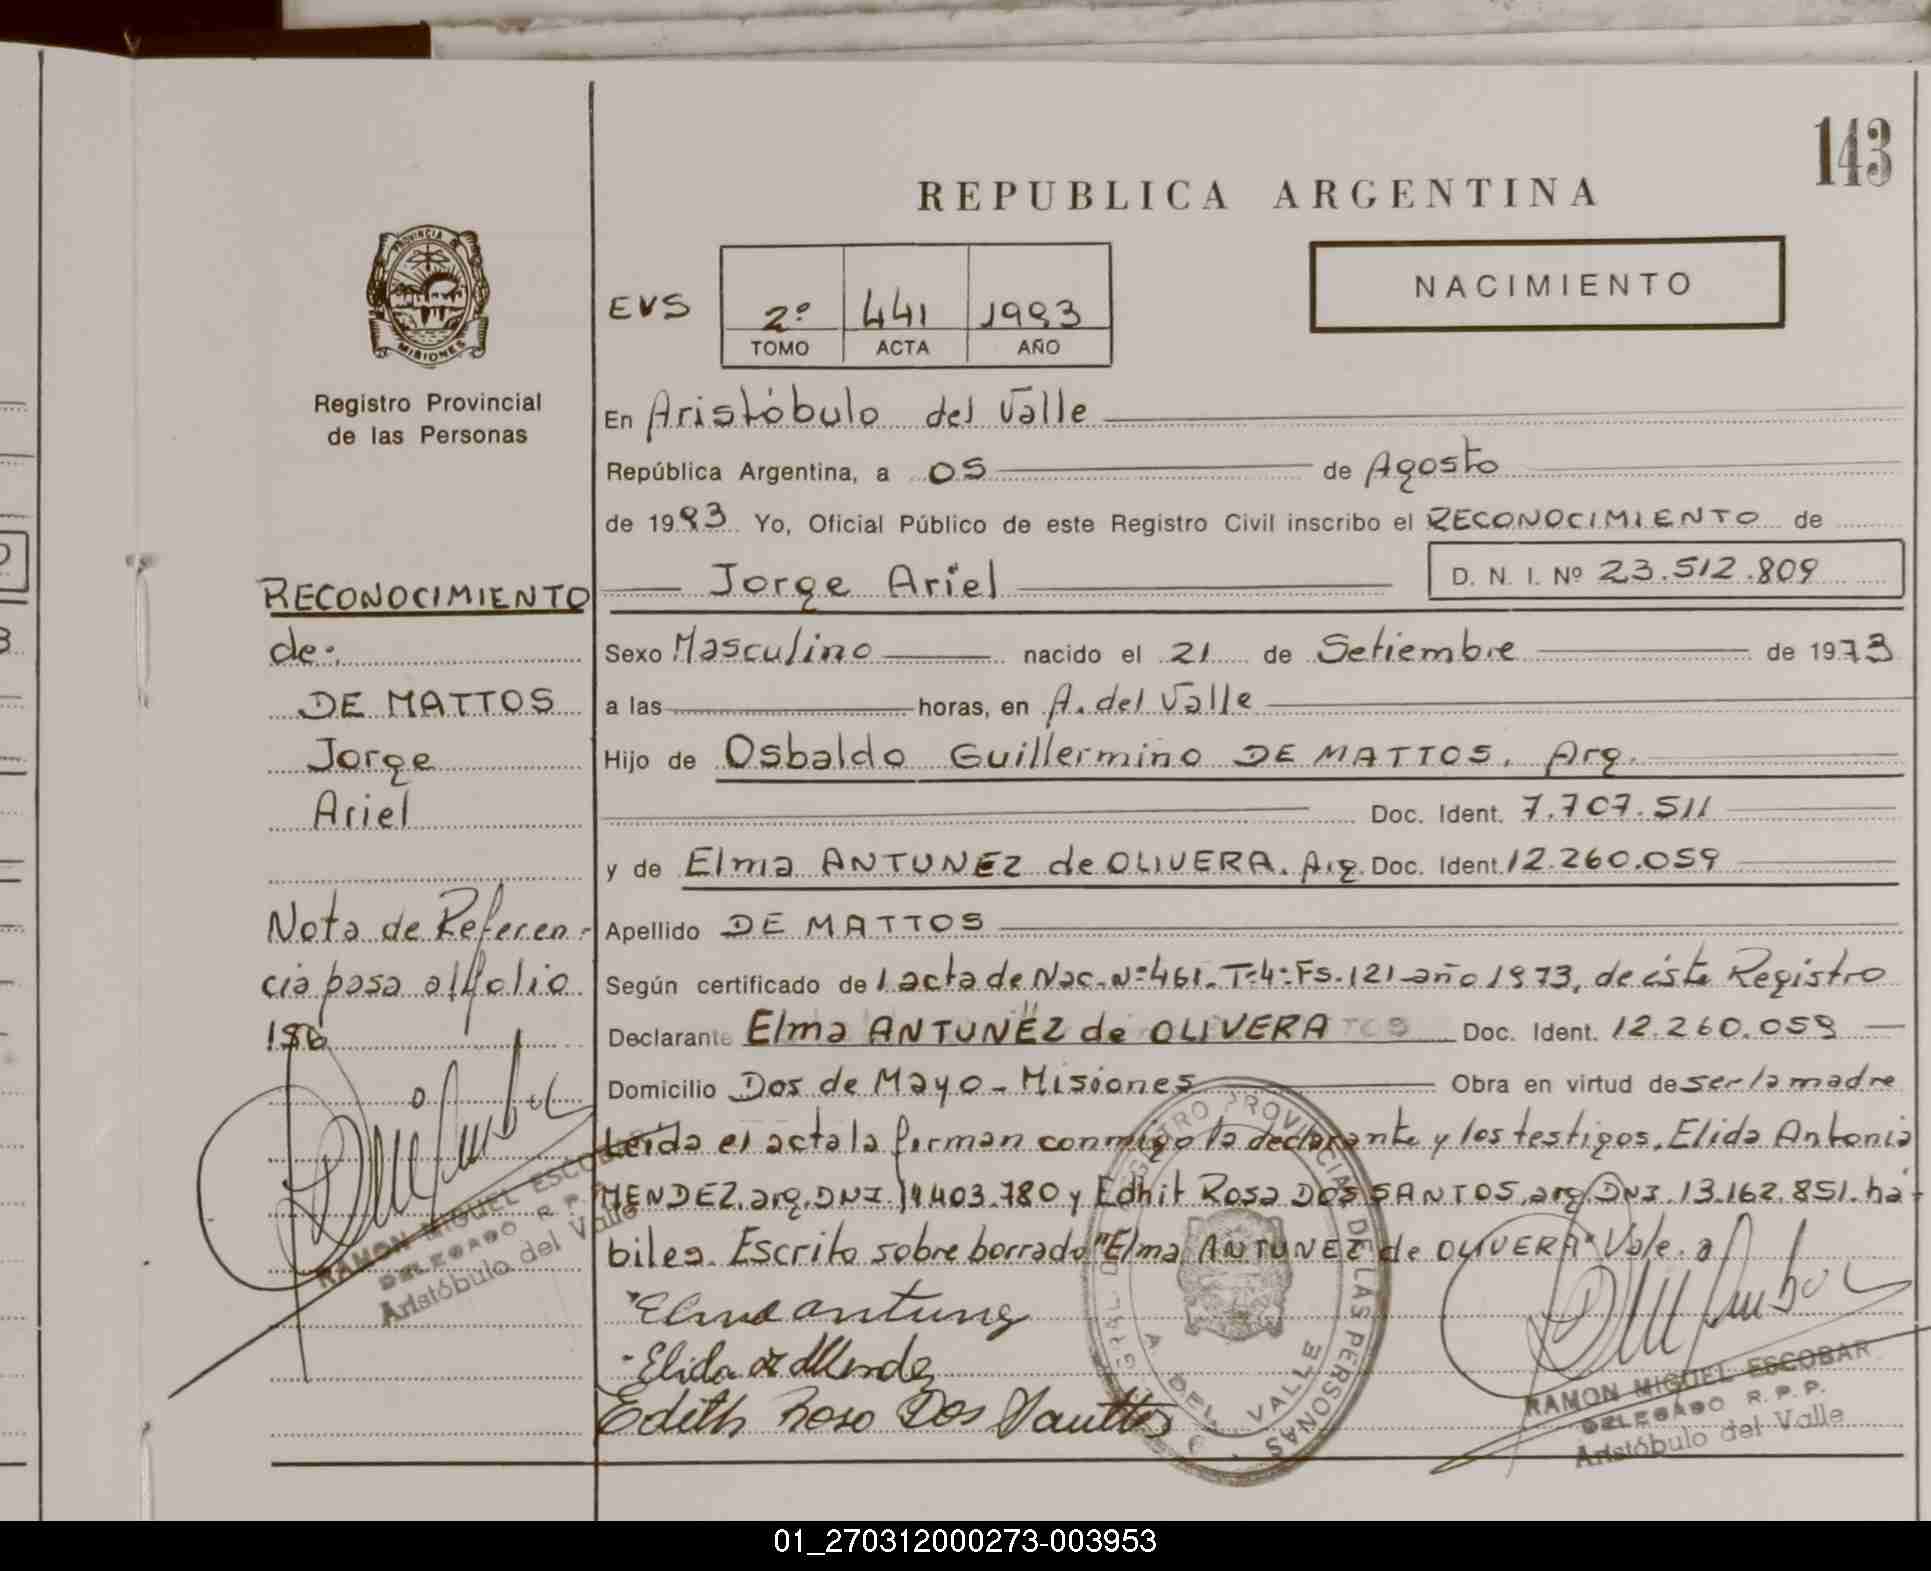 143
REPUBLICA ARGENTINA
NACIMIENTO
PROVINCIA DE
MISIONES
Registro Provincial
de las Personas
EVS 2º 441 1993
TOMO ACTA AÑO
En Aristóbulo del Valle
República Argentina, a 05 de Agosto
de 1993 Yo, Oficial Público de este Registro Civil inscribo el RECONOCIMIENTO de
Jorge Ariel D. N. I. Nº 23.512.809
Sexo Masculino nacido el 21 de Setiembre de 1973
a las horas, en A. del Valle
Hijo de Osbaldo Guillermino DE MATTOS. Arg.
Doc. Ident. 7.707.511
y de Elma ANTUNEZ de OLIVERA. Arg. Doc. Ident. 12.260.059
Apellido DE MATTOS
Según certificado de l acta de Nac. Nº 461. Tº 4º Fs. 121 año 1973, de éste Registro
Declarante Elma ANTUNEZ de OLIVERA Doc. Ident. 12.260.059
Domicilio Dos de Mayo - Misiones Obra en virtud de ser la madre
Leida el acta la firman conmigo la declarante y los testigos, Elida Antonia
MENDEZ, arg. DNI. 11.403.780 y Edhit Rosa DOS SANTOS, arg. DNI. 13.162.851. há-
biles. Escrito sobre borrado "Elma ANTUNEZ de OLIVERA" Vale.
Elma antunez
Elida A Mende
Edith Rosa Dos Santos
REGISTRO PROVINCIAL DE LAS PERSONAS
A DEL VALLE
RAMON MIGUEL ESCOBAR
DELEGADO R. P. P.
Aristóbulo del Valle
RECONOCIMIENTO
de:
DE MATTOS
Jorge
Ariel
Nota de Referen-
cia pasa al folio
186
RAMON MIGUEL ESCOBAR
DELEGADO R. P. P.
Aristóbulo del Valle
01_270312000273-003953